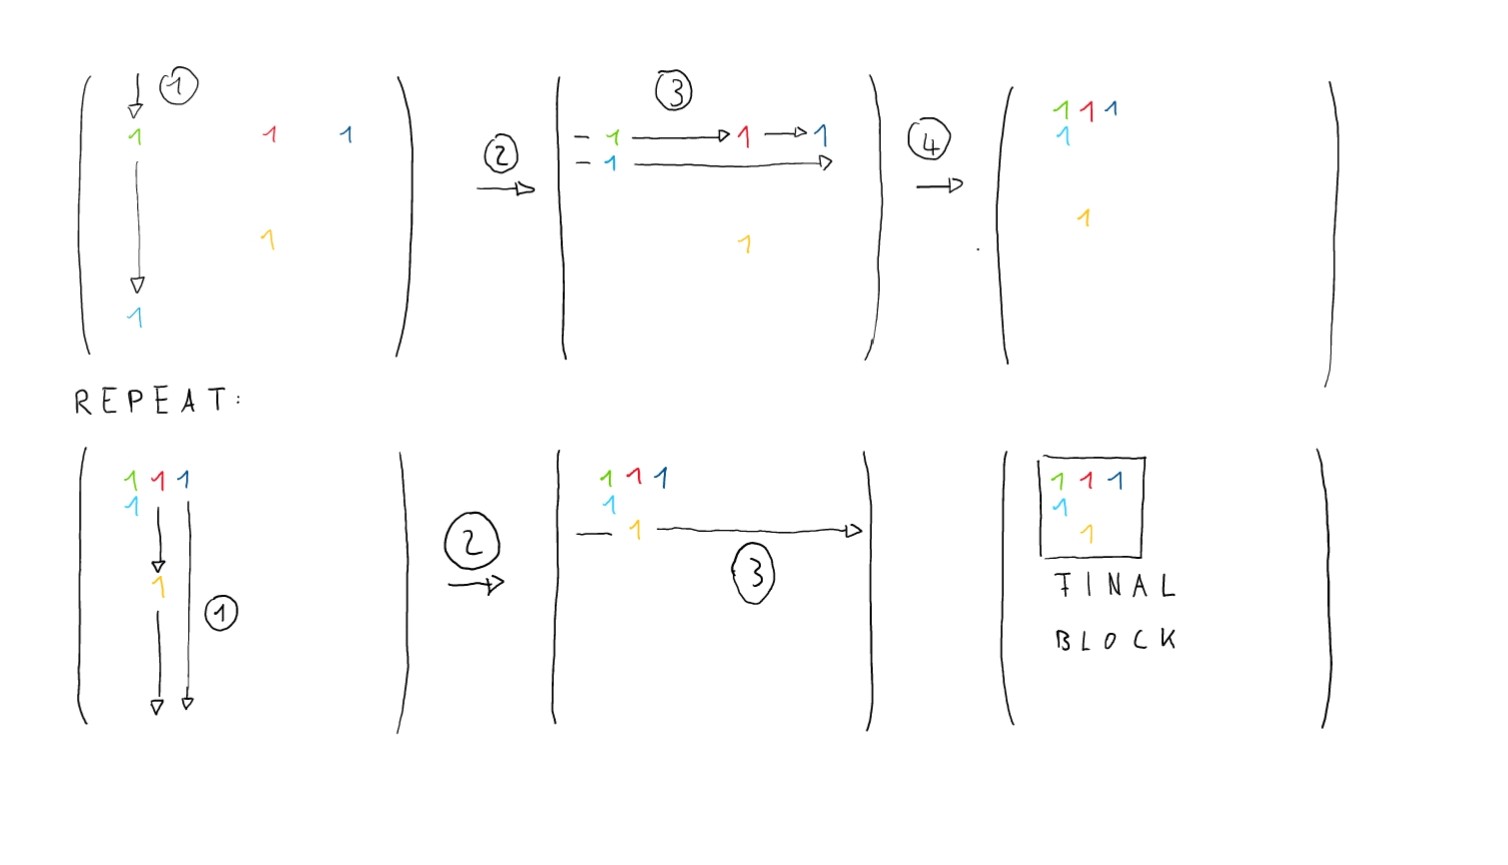 1
1 1 1
1
1
2
3
1 1 1
1
1
4
1 1 1
1
1
REPEAT:
1 1 1
1
1
1
2
1 1 1
1
1
3
1 1 1
1
1
FINAL
BLOCK